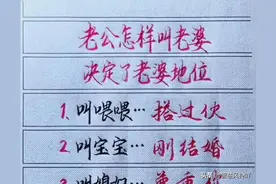 老公怎样叫老婆
决定了老婆地位
1. 叫喂喂… 搭过伙
2. 叫宝宝… 刚结婚
3. 叫媳妇…